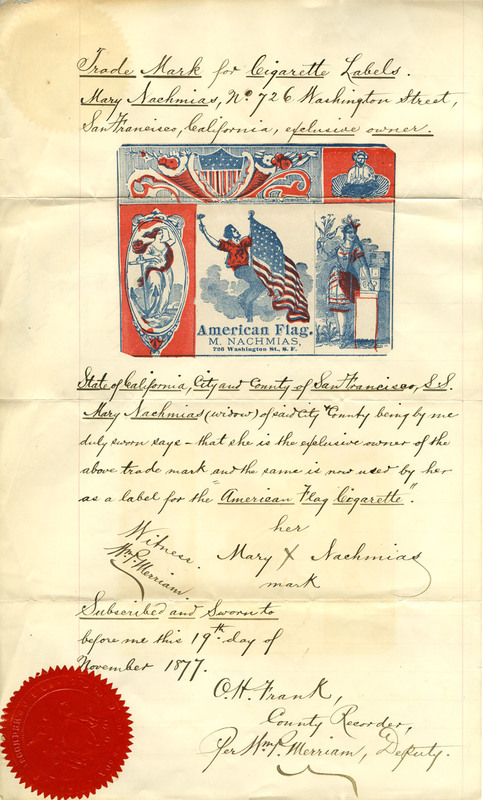 Trade Mark for Cigarette Labels.
Mary Nachmias, No. 726 Washington Street,
San Francisco, California, exclusive owner.
American Flag.
M. NACHMIAS,
726 Washington St., S. F.
State of California, City and County of San Francisco, S.S.
Mary Nachmias (widow) of said City & County being by me
duly sworn says – that she is the exclusive owner of the
above trade mark and the same is now used by her
as a label for the "American Flag Cigarette".
Witness.
Wm. P. Merriam.
her
Mary X Nachmias
mark
Subscribed and Sworn to
before me this 19th day of
November 1877.
O.H. Frank,
County Recorder,
Per Wm. P. Merriam, Deputy.